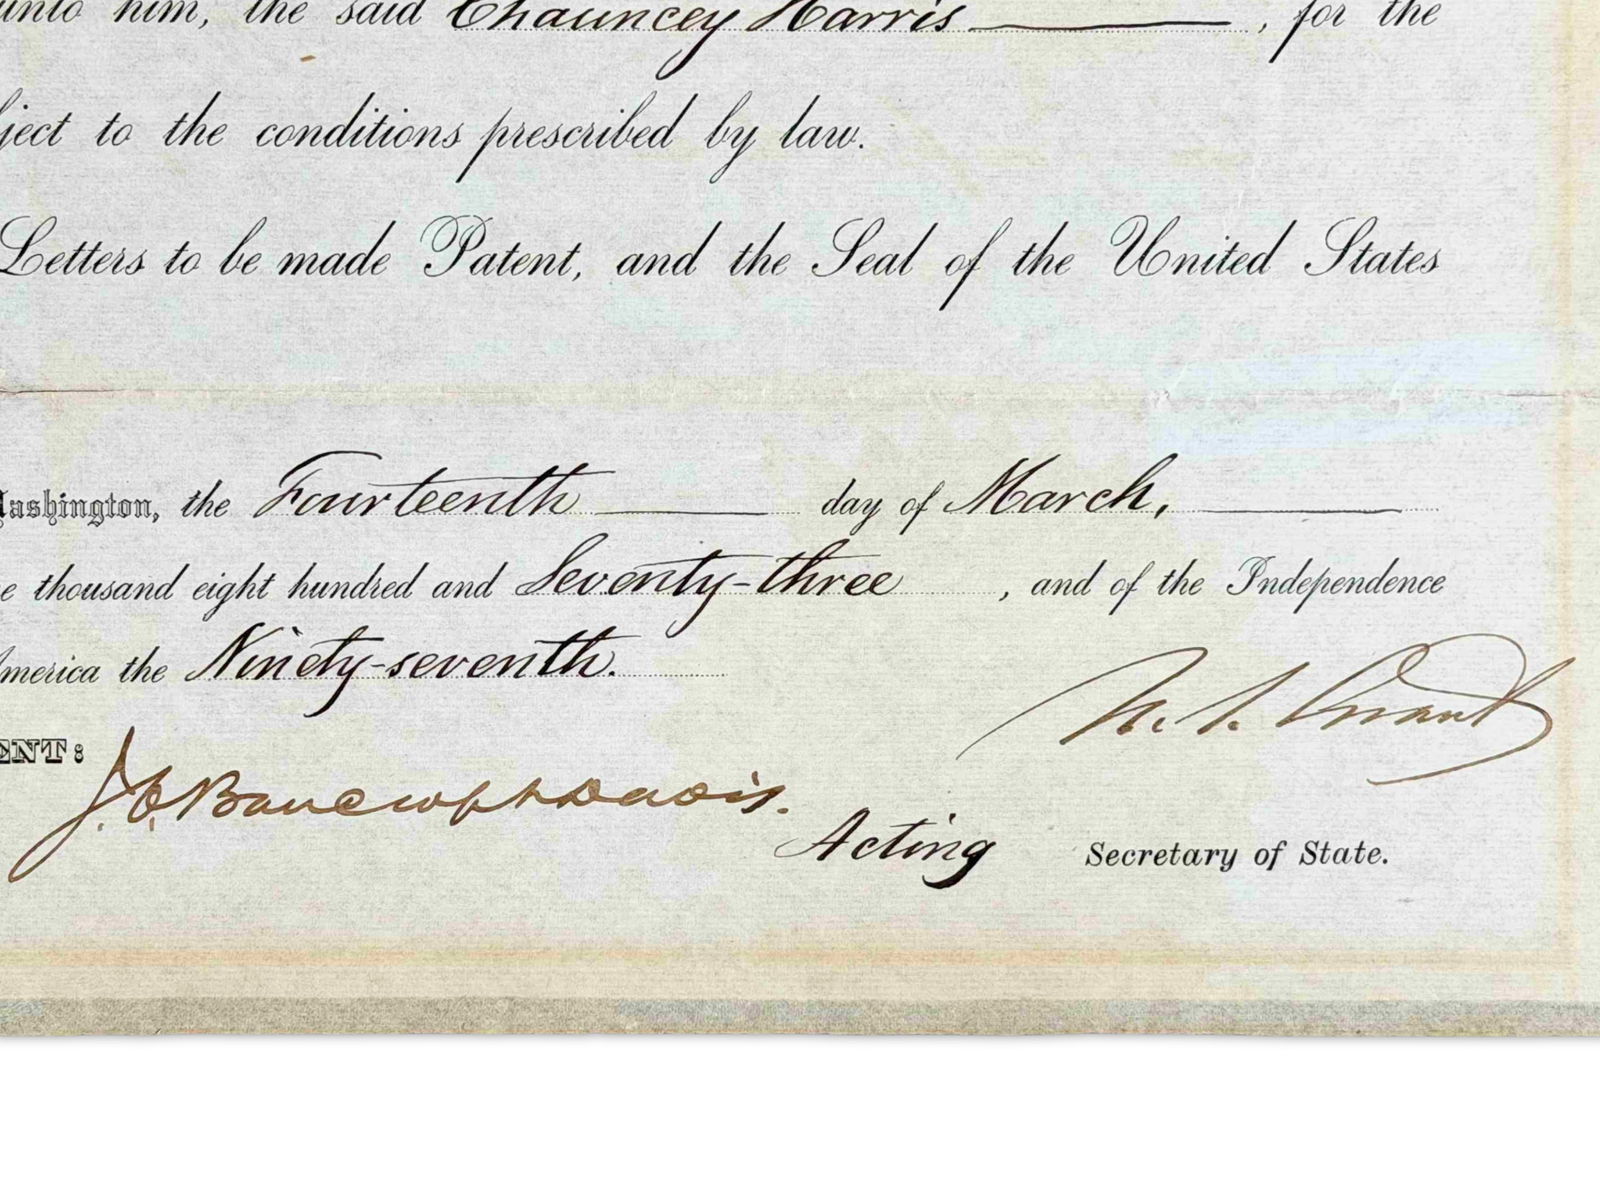 unto him, the said Chauncey Harris, for the
ject to the conditions prescribed by law.
Letters to be made Patent, and the Seal of the United States
ashington, the Fourteenth day of March,
e thousand eight hundred and Seventy-three, and of the Independence
merica the Ninety-seventh.
U. S. Grant
ENT:
J. C. Bancroft Davis.
Acting Secretary of State.